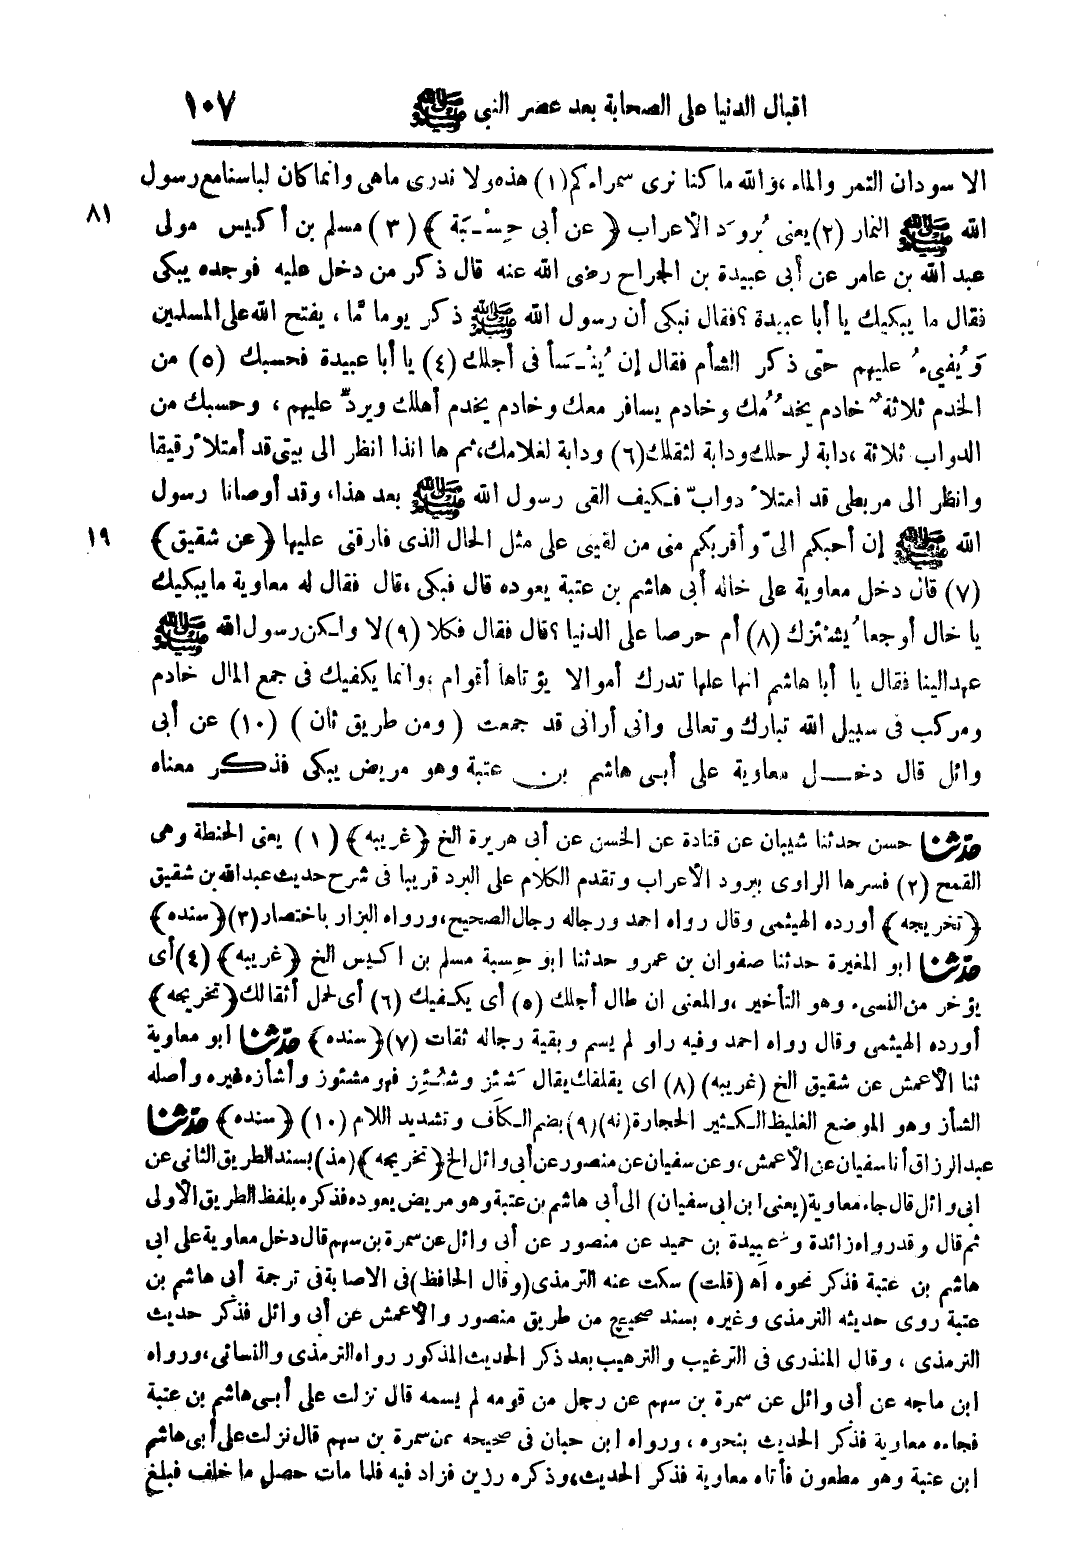 اقبال الدنيا على الصحابة بعد عصر النبى ﷺ ١٠٧
الا سودان التمر والماء ،والله ما كنا نرى سمراءكم (١) هذه ولا ندرى ماهى وانما كان لباسنا مع رسول
الله ﷺ النمار (٢) يعنى بُرودَ الأعراب ﴿ عن أبى حِسْبَة ﴾ (٣) مسلم بن أكيس مولى ٨١
عبد الله بن عامر عن أبى عبيدة بن الجراح رضى الله عنه قال ذكر من دخل عليه فوجده يبكى
فقال ما يبكيك يا أبا عبيدة ؟ فقال نبكى أن رسول الله ﷺ ذكر يوما مّا ، يفتح الله على المسلمين
وَيُفيءُ عليهم حتى ذكر الشأم فقال إن يُنْسَأ فى أجلك (٤) يا أبا عبيدة فحسبك (٥) من
الخدم ثلاثةٌ خادم يخدُمُك وخادم يسافر معك وخادم يخدم أهلك ويردّ عليهم ، وحسبك من
الدواب ثلاثة ،دابة لرحلك ودابة لثقلك (٦) ودابة لغلامك، ثم ها انذا انظر الى بيتى قد أمتلأ رقيقا
وانظر الى مربطى قد امتلأ دوابّ فكيف القى رسول الله ﷺ بعد هذا، وقد أوصانا رسول
الله ﷺ إن أحبكم الىّ وأقربكم منى من لقينى على مثل الحال الذى فارقنى عليها ﴿ عن شقيق ﴾ ١٩
(٧) قال دخل معاوية على خاله أبى هاشم بن عتبة يعوده قال فبكى ،قال فقال له معاوية ما يبكيك
يا خال أوجعا يُشئزك (٨) أم حرصا على الدنيا ؟ قال فقال فكلا (٩) لا ولكن رسول الله ﷺ
عهد الينا فقال يا أبا هاشم انها علها تدرك أموالا يؤتاها أقوام ،وانما يكفيك فى جمع المال خادم
ومركب فى سبيل الله تبارك وتعالى وانى أرانى قد جمعت ( ومن طريق ثان ) (١٠) عن أبى
وائل قال دخل معاوية على أبى هاشم بن عتبة وهو مريض يبكى فذكر معناه
حدّثنا حسن حدثنا شيبان عن قتادة عن الحسن عن أبى هريرة الخ ﴿ غريبه ﴾ (١) يعنى الحنطة وهى
القمح (٢) فسرها الراوى ببرود الأعراب وتقدم الكلام على البرد قريبا فى شرح حديث عبد الله بن شقيق
﴿ تخريجه ﴾ أورده الهيثمى وقال رواه احمد ورجاله رجال الصحيح، ورواه البزار باختصار (٣) ﴿ سنده ﴾
حدّثنا ابو المغيرة حدثنا صفوان بن عمرو حدثنا ابو حسبة مسلم بن اكيس الخ ﴿ غريبه ﴾ (٤) أى
يؤخر من النسىء وهو التأخير ،والمعنى ان طال أجلك (٥) أى يكفيك (٦) أى لحمل أثقالك ﴿ تخريجه ﴾
أورده الهيثمى وقال رواه احمد وفيه راو لم يسم وبقية رجاله ثقات (٧) ﴿ سنده ﴾ حدّثنا ابو معاوية
ثنا الأعمش عن شقيق الخ (غريبه) (٨) اى يقلقك يقال شَئِز وشُئِز فهو مشئوز وأشأزه غيره وأصله
الشأز وهو الموضع الغليظ الكثير الحجارة (نه) (٩) بضم الكاف وتشديد اللام (١٠) ﴿ سنده ﴾ حدّثنا
عبد الرزاق أنا سفيان عن الأعمش ،وعن سفيان عن منصور عن أبى وائل الخ ﴿ تخريجه ﴾ (مذ) بسند الطريق الثانى عن
ابى وائل قال جاء معاوية (يعنى ابن ابى سفيان) الى أبى هاشم بن عتبة وهو مريض يعوده فذكره بلفظ الطريق الأولى
ثم قال وقد رواه زائدة وعَبيدة بن حميد عن منصور عن أبى وائل عن سمرة بن سهم قال دخل معاوية على ابى
هاشم بن عتبة فذكر نحوه اه (قلت) سكت عنه الترمذى (وقال الحافظ) فى الاصابة فى ترجمة أبى هاشم بن
عتبة روى حديثه الترمذى وغيره بسند صحيح من طريق منصور والأعمش عن أبى وائل فذكر حديث
الترمذى ، وقال المنذرى فى الترغيب والترهيب بعد ذكر الحديث المذكور رواه الترمذى والنسائى، ورواه
ابن ماجه عن أبى وائل عن سمرة بن سهم عن رجل من قومه لم يسمه قال نزلت على أبى هاشم بن عتبة
فجاءه معاوية فذكر الحديث بنحوه ، ورواه ابن حبان فى صحيحه عن سمرة بن سهم قال نزلت على أبى هاشم
ابن عتبة وهو مطعون فأتاه معاوية فذكر الحديث، وذكره رزين فزاد فيه فلما مات حصل ما خلف فبلغ